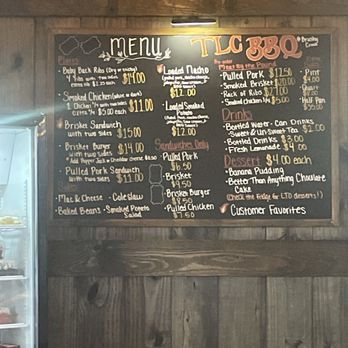 MENU
TLC BBQ
= Briskey Crowd
Plates
Baby Back Ribs (Dry or Sticky)
with two sides $14.00
Smoked Chicken (white or dark)
with two sides $11.00
Brisket Sandwich
with two sides $15.00
Brisket Burger $14.00
with two sides
Add Pepper Jack or Cheddar cheese
Pulled Pork Sandwich
with two sides $11.00
Mac & Cheese - Coleslaw
Baked Beans - Smoked Potato
Salad
Loaded Nacho
$12.00
Loaded Smoked
Potato
$12.00
Sandwiches Only
Pulled Pork
$6.50
Brisket
$9.50
Brisket Burger
$8.50
Pulled Chicken
$7.50
Meat By the Pound
Pulled Pork $11.50
Smoked Brisket $20.00
Rack of Ribs $27.00
Smoked Chicken
Drinks
Bottled Water - Can Drinks
Sweet & Un-Sweet Tea $2.00
Bottled Drinks $3.00
Fresh Lemonade $4.00
Dessert $4.00 each
Banana Pudding
Better Than Anything Chocolate
Cake
(Check the Fridge for LTO desserts!)
Customer Favorites
Pint
$4.00
Quart
Half Pan